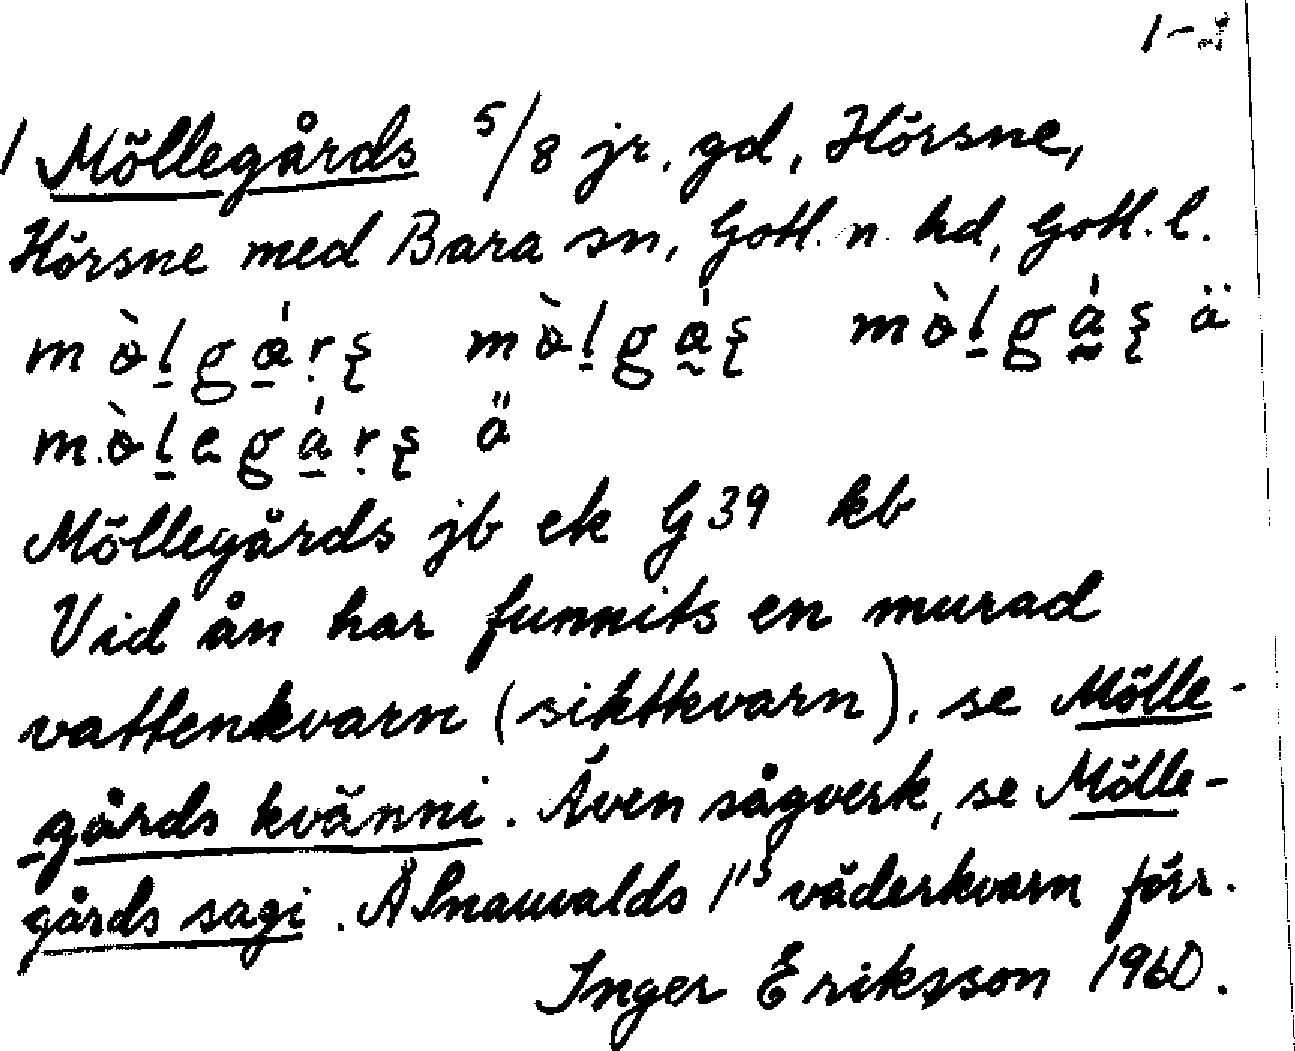 1-2
1 Möllegårds 5/8 jr. gd, Hörsne,
Hörsne med Bara sn, Gotl. n. hd, Gotl. l.
mò̀l̲gáṛş mòl̲gá̰ş mòl̲gá̰ş ä
mòl̲egá̲ṛş ä
Möllegårds jb ek G 39 kb
Vid ån har funnits en murad
vattenkvarn (siktkvarn), se Mölle-
gårds kvänni. Även sågverk, se Mölle-
gårds sagi. Å Snauvalds väderkvarn förr.
Inger Eriksson 1960.